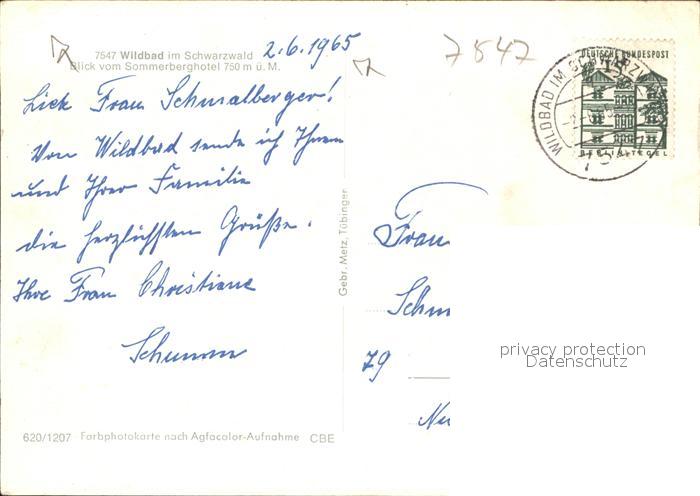 7547 Wildbad im Schwarzwald
Blick vom Sommerberghotel 750 m ü. M.
2.6.1965
7547
DEUTSCHE BUNDESPOST
WILDBAD IM SCHWARZW
BERLIN-TEGEL
Lieb Frau Schmalberger!
Von Wildbad sende ich Ihnen
und Ihrer Familie
die herzlichsten Grüße.
Ihre Frau Christiane
Schumm
Gebr. Metz, Tübingen
Frau
Schm
79
privacy protection
Datenschutz
620/1207 Farbphotokarte nach Agfacolor-Aufnahme CBE